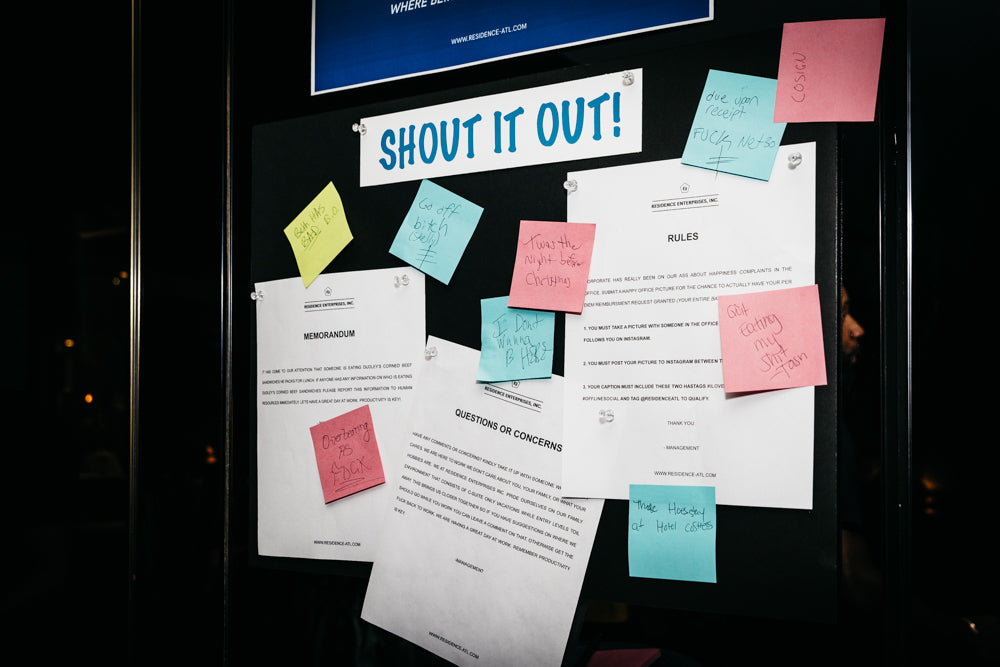 WHERE
WWW.RESIDENCE-ATL.COM
SHOUT IT OUT!
COSIGN
due upon
receipt
FUCK Net30
Beth HAS
BAD B.O.
Go off
bitch
(Stelly)
Twas the
Night before
Christmas
I Don't
Wanna
B HERE
Quit
Eating
my
shit
Tash
Overbearing
AS
FUCK
Those Tuesday
at Hotel
RESIDENCE ENTERPRISES, INC.
MEMORANDUM
IT HAS COME TO OUR ATTENTION THAT SOMEONE IS EATING DUDLEY'S CORNED BEEF
SANDWICHES HE PACKS FOR LUNCH. IF ANYONE HAS ANY INFORMATION ON WHO IS EATING
DUDLEY'S CORNED BEEF SANDWICHES PLEASE REPORT THIS INFORMATION TO HUMAN
RESOURCES IMMEDIATELY. LETS HAVE A GREAT DAY AT WORK. PRODUCTIVITY IS KEY!
WWW.RESIDENCE-ATL.COM
RESIDENCE ENTERPRISES, INC.
QUESTIONS OR CONCERNS
HAVE ANY COMMENTS OR CONCERNS? KINDLY TAKE IT UP WITH SOMEONE
CARES. WE ARE HERE TO WORK WE DON'T CARE ABOUT YOU, YOUR FAMILY, OR WHAT YOUR
HOBBIES ARE. WE AT RESIDENCE ENTERPRISES INC. PRIDE OURSELVES ON OUR FAMILY
ENVIRONMENT THAT CONSISTS OF C-SUITE ONLY VACATIONS WHILE ENTRY LEVELS TOIL
AWAY. THIS BRINGS US CLOSER TOGETHER SO IF YOU HAVE SUGGESTIONS ON WHERE WE
SHOULD GO WHILE YOU WORK YOU CAN LEAVE A COMMENT ON THAT. OTHERWISE GET THE
FUCK BACK TO WORK. WE ARE HAVING A GREAT DAY AT WORK. REMEMBER PRODUCTIVITY
IS KEY!
-MANAGEMENT
WWW.RESIDENCE-ATL.COM
RESIDENCE ENTERPRISES, INC.
RULES
CORPORATE HAS REALLY BEEN ON OUR ASS ABOUT HAPPINESS COMPLAINTS IN THE
OFFICE. SUBMIT A HAPPY OFFICE PICTURE FOR THE CHANCE TO ACTUALLY HAVE YOUR PER
DIEM REIMBURSMENT REQUEST GRANTED (YOUR ENTIRE
1. YOU MUST TAKE A PICTURE WITH SOMEONE IN THE OFFICE
FOLLOWS YOU ON INSTAGRAM.
2. YOU MUST POST YOUR PICTURE TO INSTAGRAM BETWEEN
3. YOUR CAPTION MUST INCLUDE THESE TWO HASTAGS
#OFFLINESOCIAL AND TAG @RESIDENCEATL TO QUALIFY.
THANK YOU
- MANAGEMENT
WWW.RESIDENCE-ATL.COM